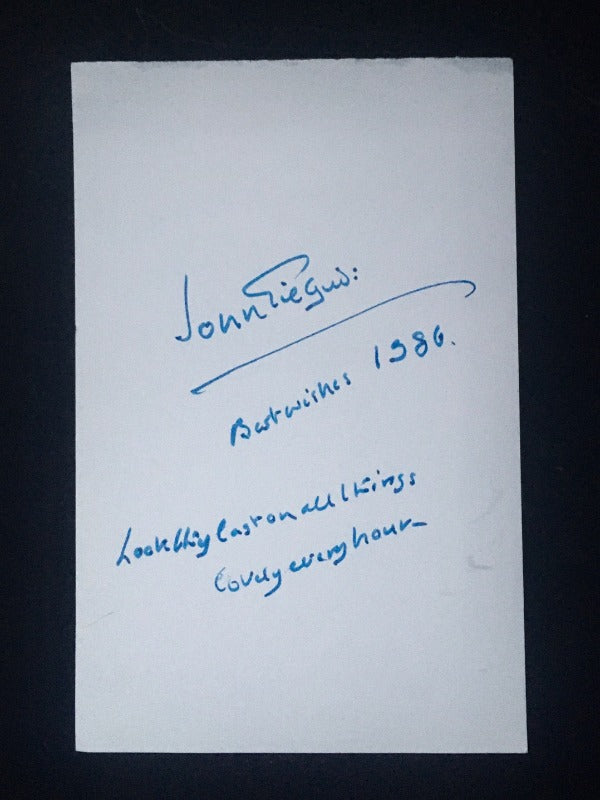 Best wishes 1986.
Look thy last on all things
lovely every hour –